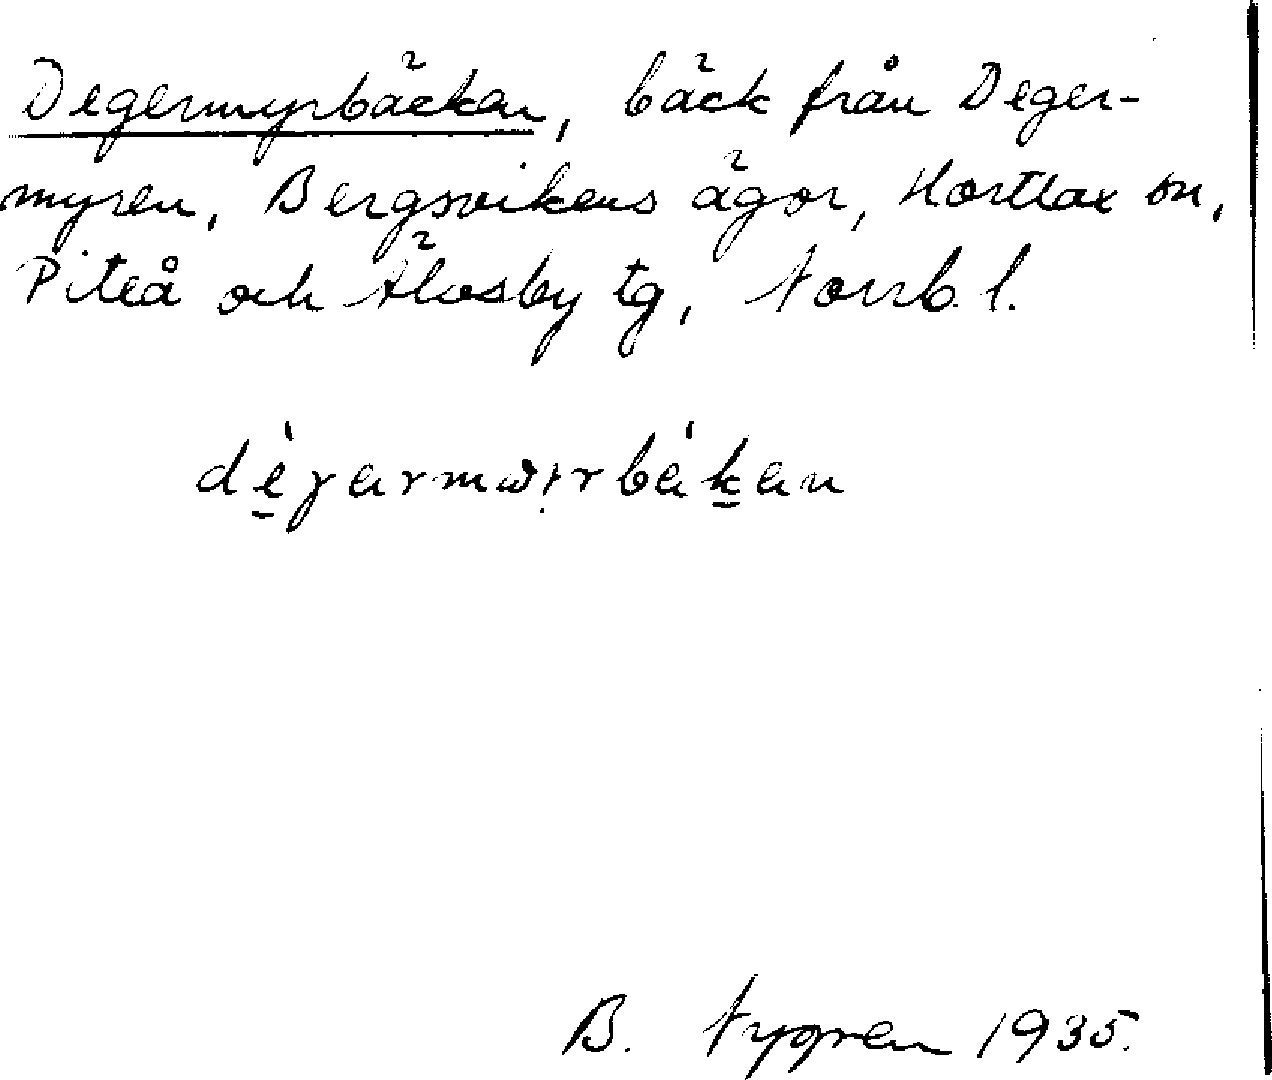 Degermyrbäcken, bäck från Deger-
myren, Bergsvikens ägor, Hortlax sn,
Piteå och Älvsby tg, Norrb. l.
B. Nygren 1935.